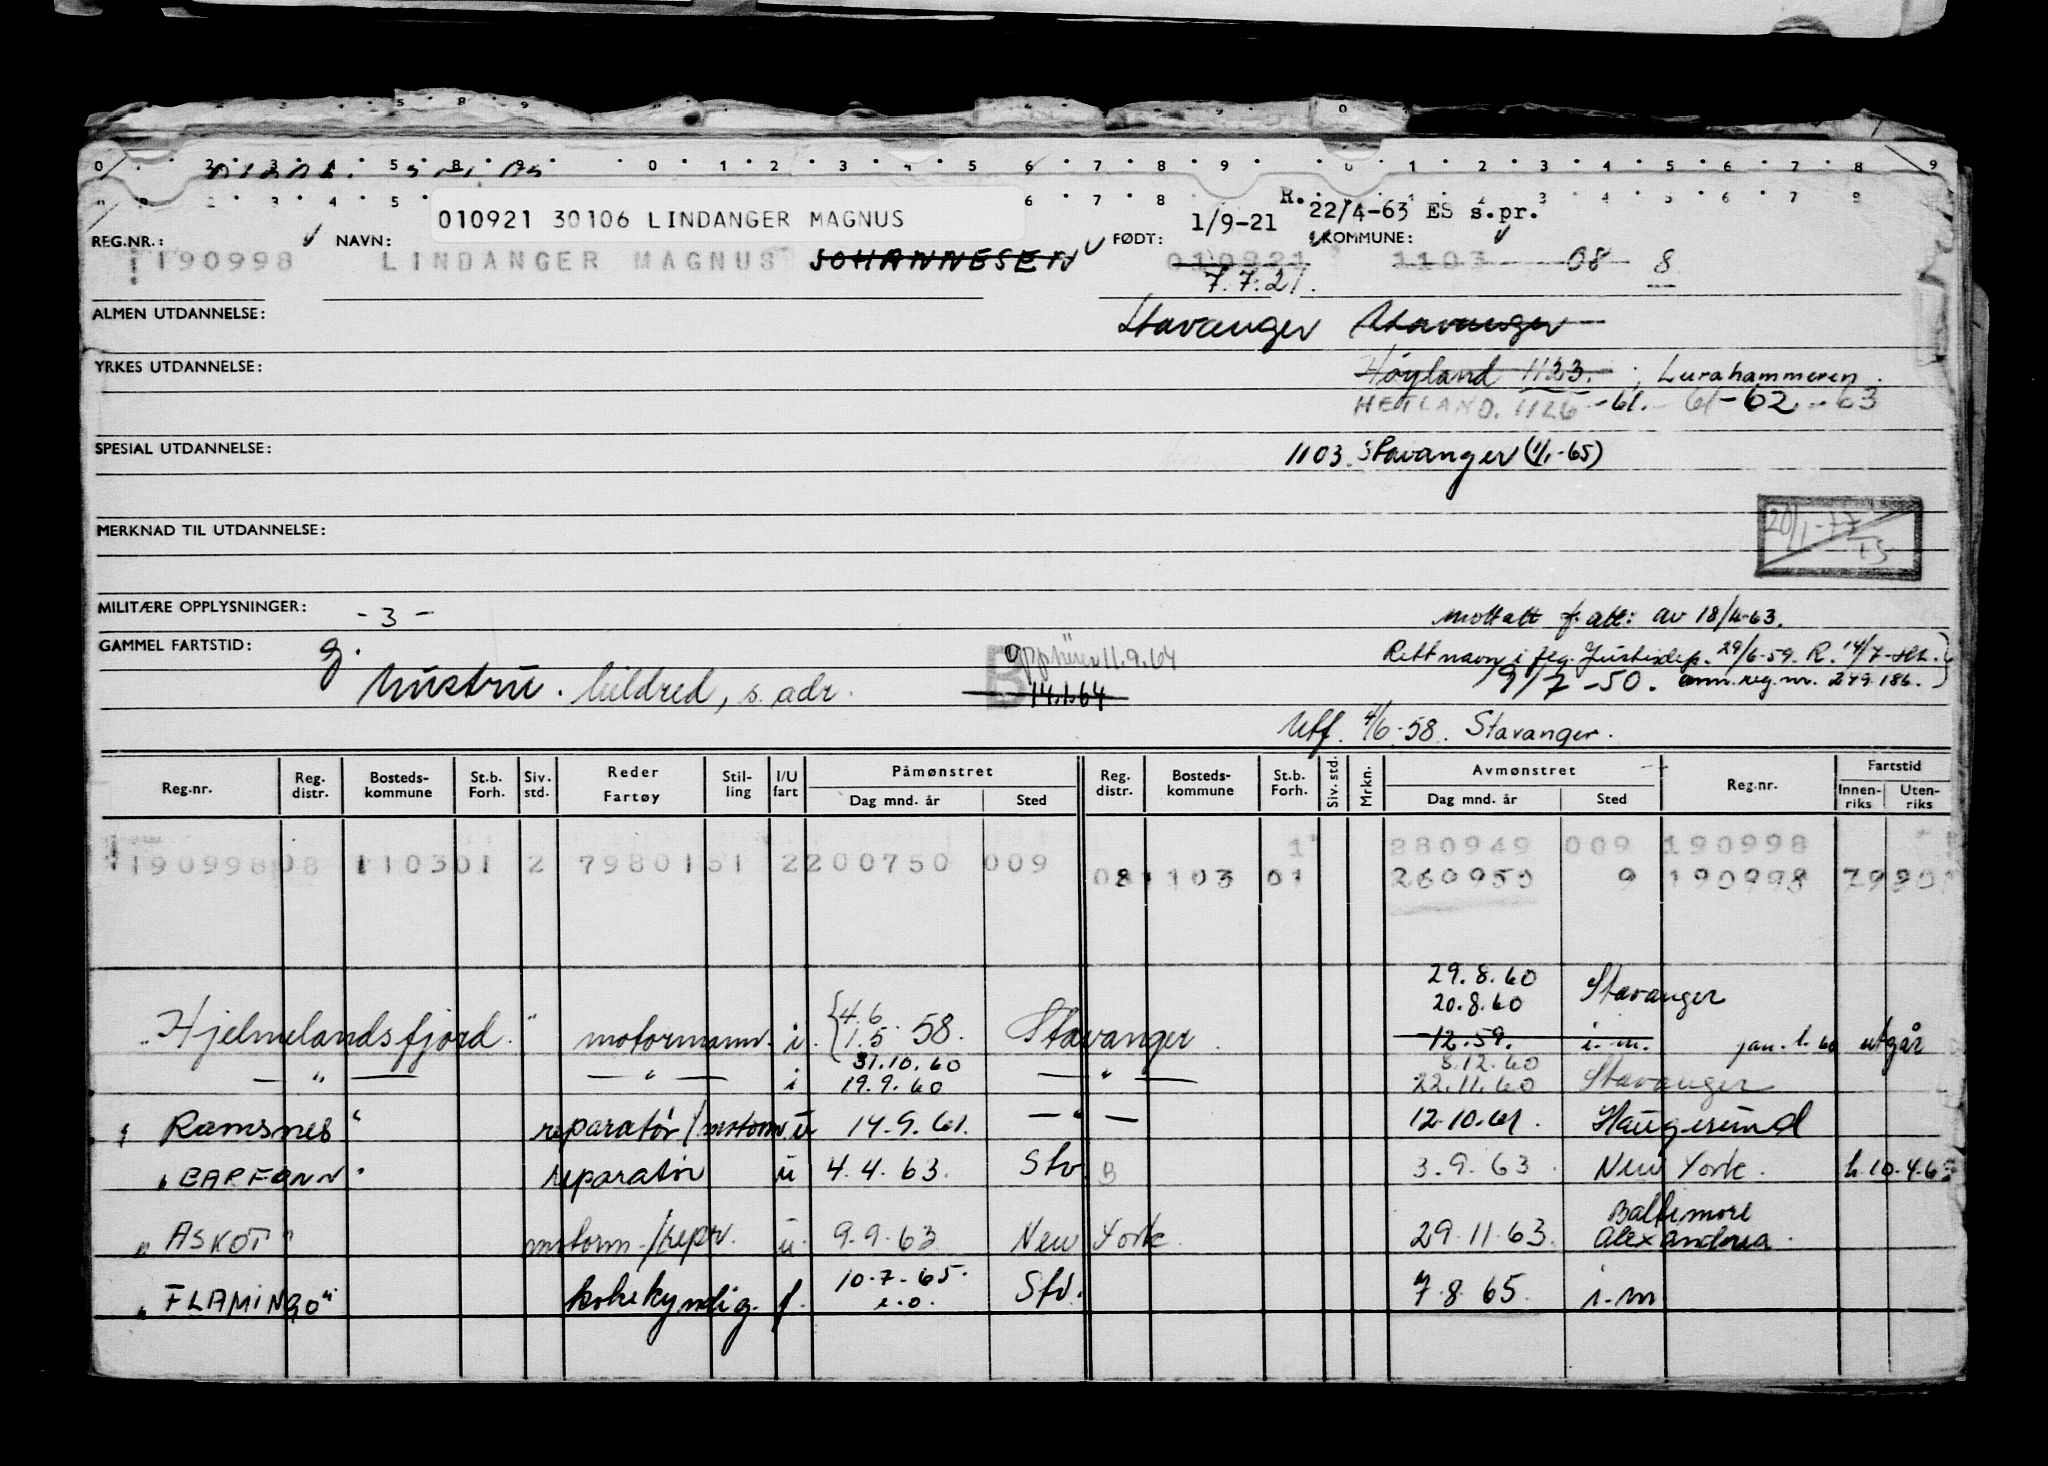 010921 30106 LINDANGER MAGNUS
R. 22/4-63 ES s.pr.
1/9-21
REG.NR.: NAVN: FØDT: KOMMUNE:
190998 LINDANGER MAGNUS JOHANNESEN 010921 1103 08 8
7.7.21.
ALMEN UTDANNELSE: Stavanger Stavanger
YRKES UTDANNELSE: Høyland 1133. Lurahammeren.
HETLAND. 1126 -61. 61-62-63
SPESIAL UTDANNELSE: 1103. Stavanger (1/1-65)
MERKNAD TIL UTDANNELSE: 20/1-77
MILITÆRE OPPLYSNINGER: -3- Mottatt f. att: av 18/4-63.
GAMMEL FARTSTID: g. Opphører 11.9.64 Rett navn i flg. Justisdep. 29/6-59. R. 14/7
hustru. Mildred, s. adr. B 14.1.64 9/7-50. ann.reg.nr. 249.186.
Utf. 4/6-58. Stavanger.
Reg.nr. Reg. distr. Bosteds-kommune St.b. Forh. Siv. std. Reder Fartøy Stil-ling I/U fart Påmønstret Dag mnd. år Sted Reg. distr. Bosteds-kommune St.b. Forh. Siv. std. Mrkn. Avmønstret Dag mnd. år Sted Reg.nr. Fartstid Innen-riks Uten-riks
1 280949 009 190998
190998 08 1103 01 2 7980151 2 200750 009 08 1103 01 260950 9 190998 79 90
29.8.60
20.8.60 Stavanger
"Hjelmelandsfjord" motormann. i. 4.6 1.5 58. Stavanger. -12.59. i.m. jan. l. 60 utgår
31.10.60 8.12.60
— " — — " — i 19.9.60 — " — 22.11.60 Stavanger
"Ramsnes" reparatør/motorm u 14.9.61. — " — 12.10.61. Haugesund
"BARFONN" reparatør u 4.4.63. Stv. B 3.9.63. New York. h.10.4.6
"ASKOT" motorm./repr. u. 9.9.63 New York. 29.11.63. Baltimore Alexandria.
"FLAMINGO" kokekyndig. f. 10.7.65. Stv. 7.8.65. i.m
e.o.